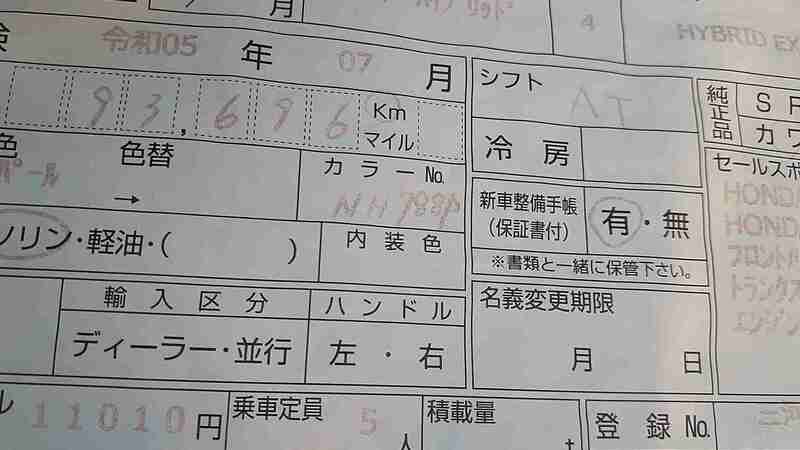 月
4
HYBRID EX
検 令和05 年 07 月
シフト AT
純正品
93,696 Km マイル
冷房
色替
→
カラーNo.
NH788P
パール
新車整備手帳
(保証書付)
有・無
ソリン・軽油・( )
内装色
※書類と一緒に保管下さい。
セールスポ
HONDA
HONDA
フロント
トランク
エンジン
輸入区分
ハンドル
名義変更期限
ディーラー・並行
左・右
月 日
ル 11010円
乗車定員 5 人
積載量 t
登録No.